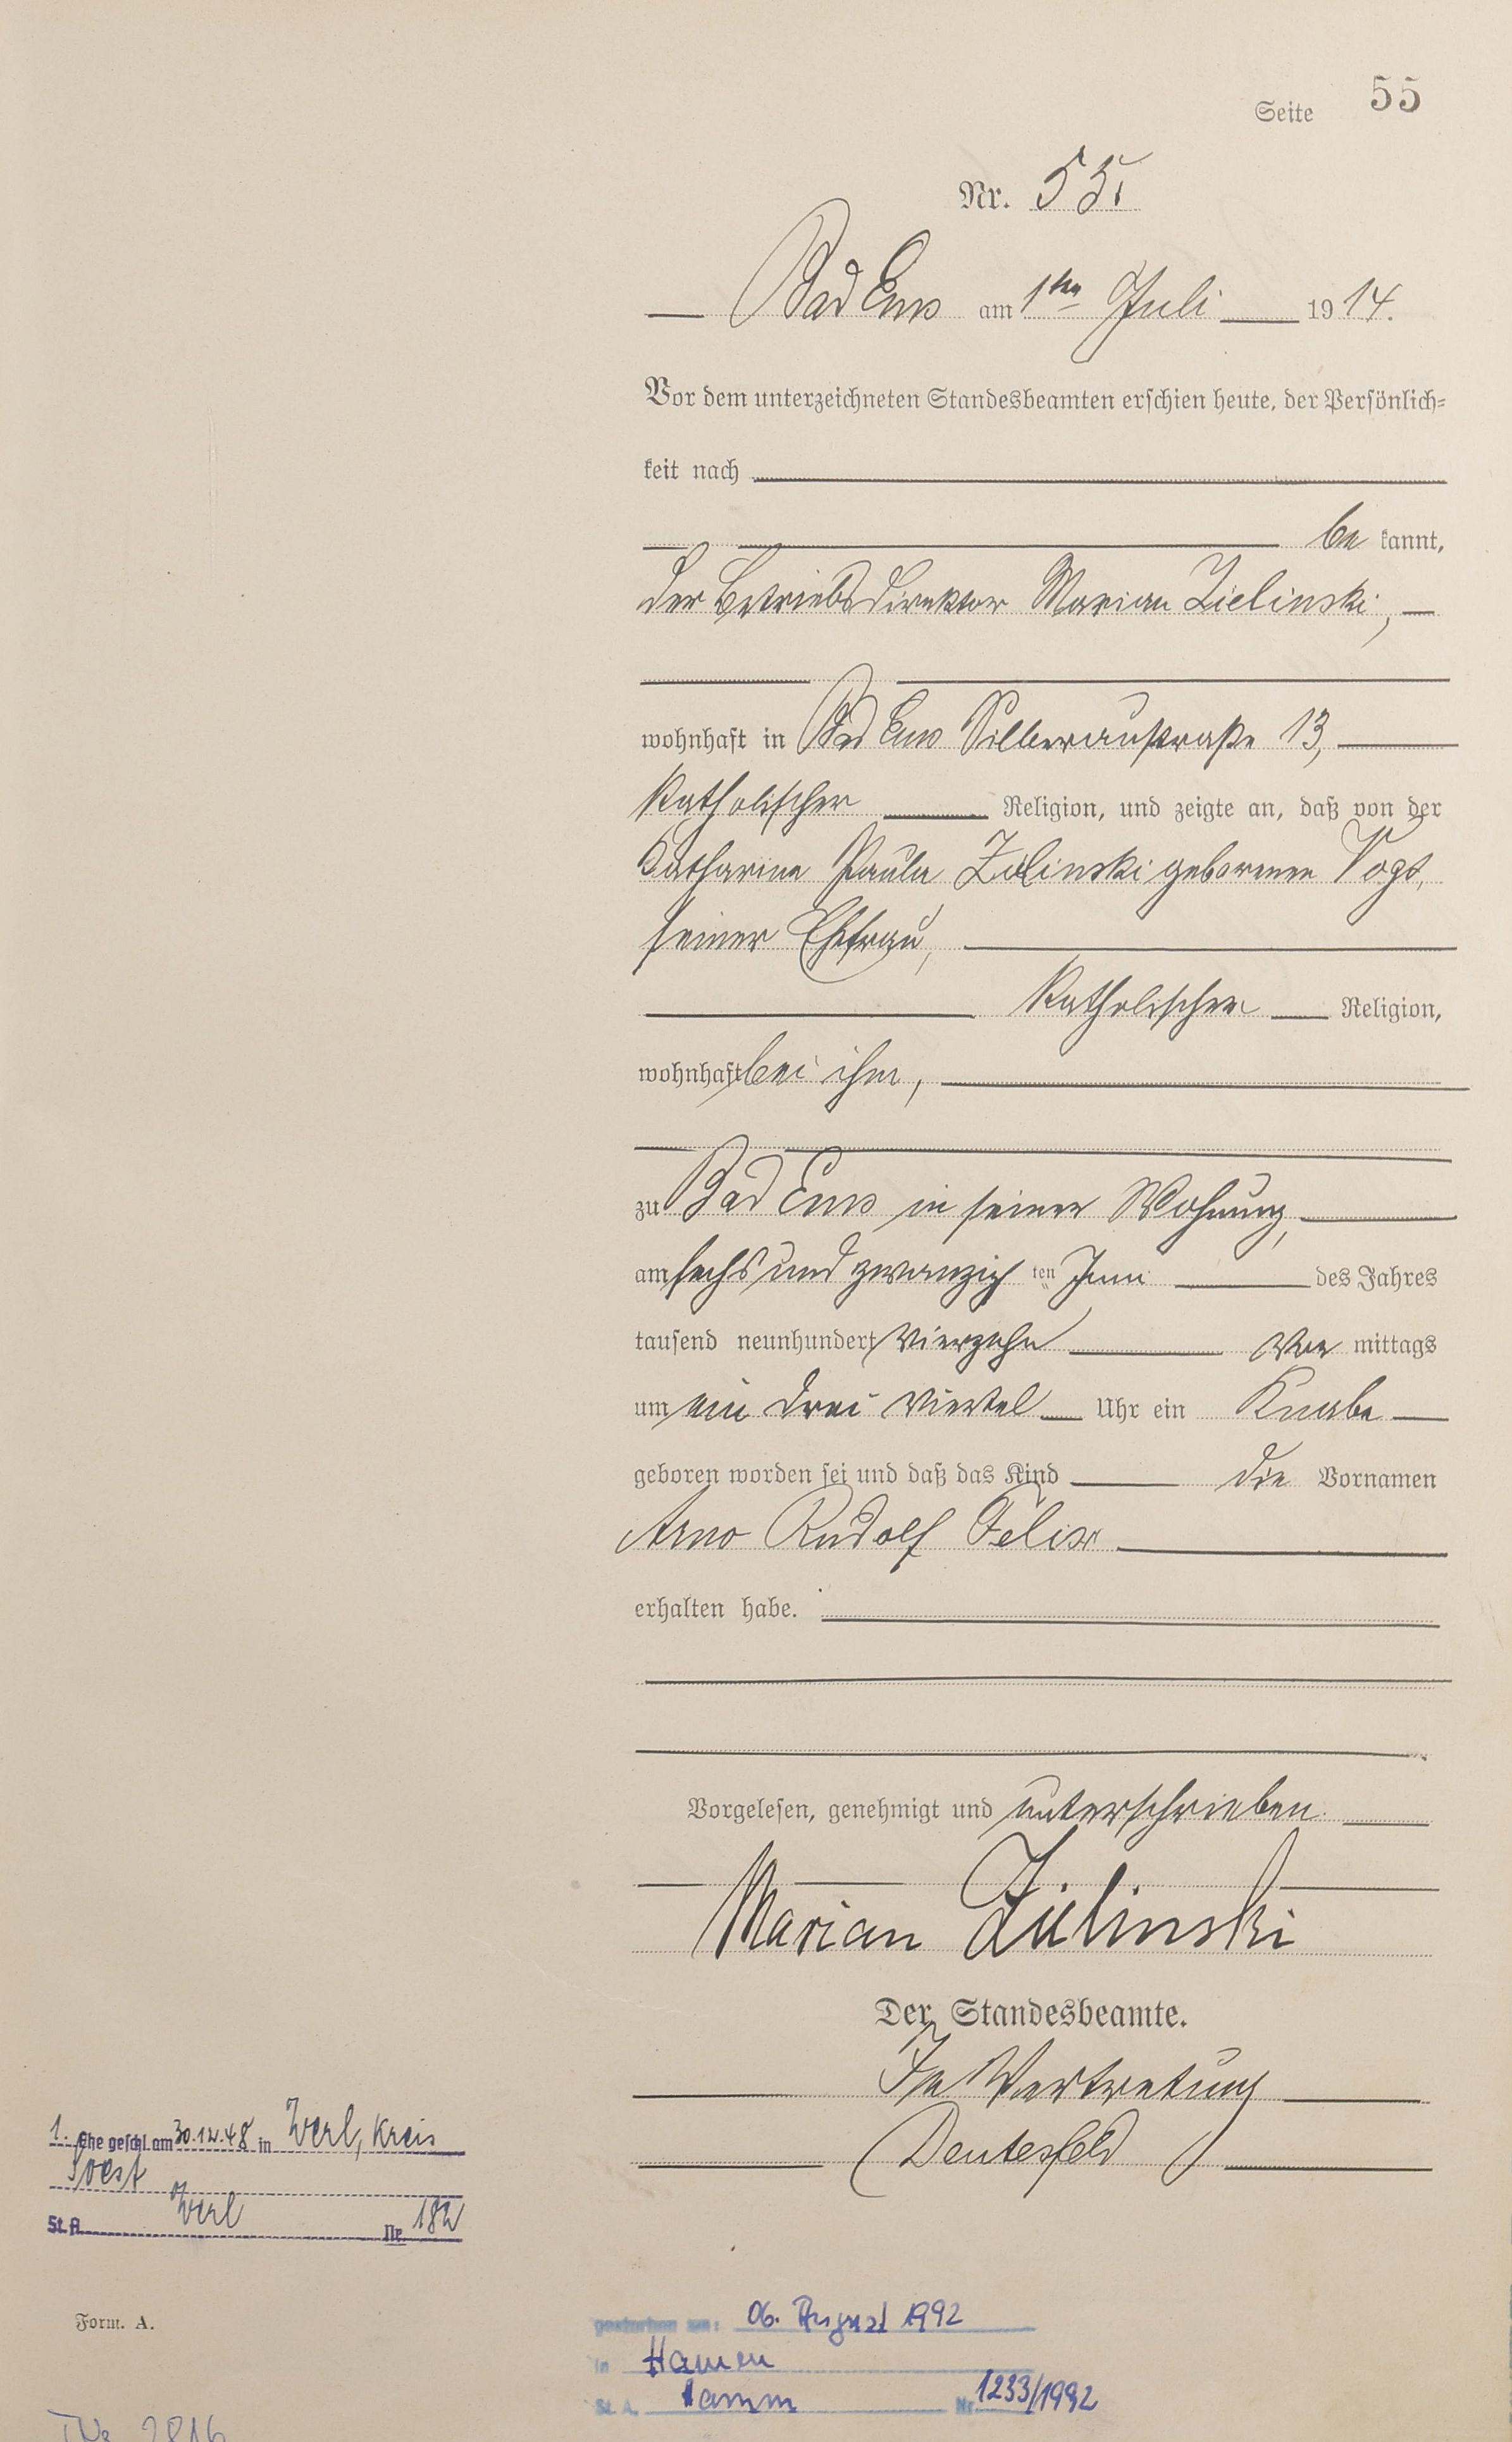 Seite 55
Nr. 55.
Bad Ems am 1ten Juli 1914.
Vor dem unterzeichneten Standesbeamten erschien heute, der Persönlich=
keit nach
be kannt,
der Betriebsdirektor Marian Zielinski,
wohnhaft in Bad Ems Silberaustraße 13,
katholischer Religion, und zeigte an, daß von der
Katharina Paula Zielinski geborenen Vogt,
seiner Ehefrau,
katholischer Religion,
wohnhaft bei ihm,
zu Bad Ems in seiner Wohnung,
am sechs und zwanzig ten Juni des Jahres
tausend neunhundert vierzehn vor mittags
um ein drei viertel Uhr ein Knabe
geboren worden sei und daß das Kind die Vornamen
Arno Rudolf Felix
erhalten habe.
Vorgelesen, genehmigt und unterschrieben.
Marian Zielinski
Der Standesbeamte.
In Vertretung
Deutesfeld
1. Ehe geschl. am 30.12.48 in Werl, Kreis
Soest
St.A. Werl Nr. 182
Form. A.
gestorben am: 06. August 1992
in Hamm
St. A. Hamm Nr. 1233/1992
2816